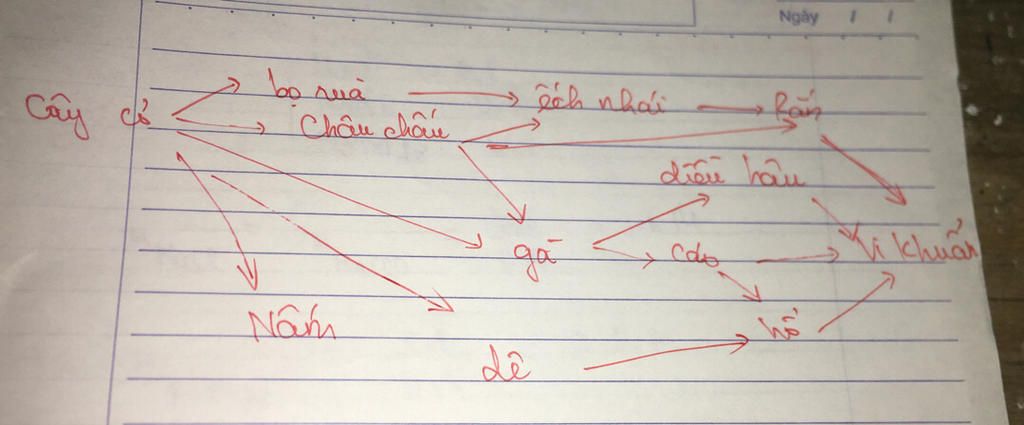 Ngày / /
bọ rùa ếch nhái Rắn
Cây cỏ Châu chấu
diều hâu
gà cáo Vi khuẩn
Nấm hổ
dê